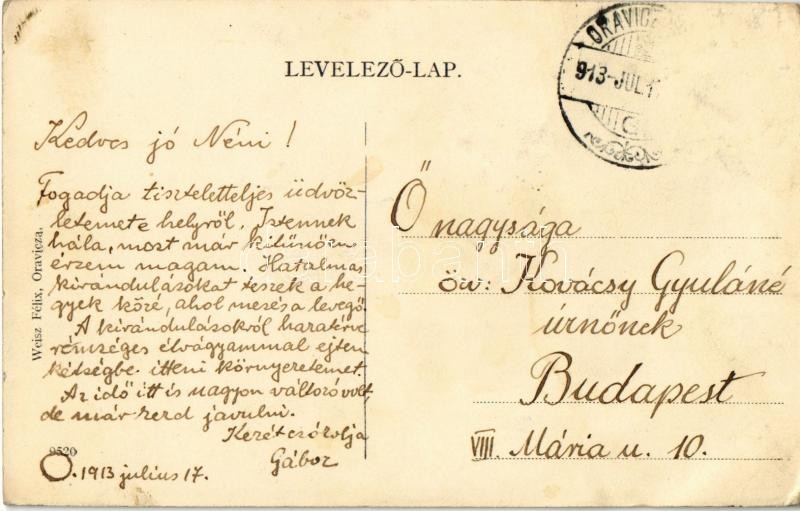 LEVELEZŐ-LAP.
ORAVICZ
913-JUL.1
C
Kedves jó Néni!
Fogadja tiszteletteljes üdvöz-
letemet e helyről. Istennek
hála, most már kitünően
érzem magam. Hatalmas
kirándulásokat teszek a he-
gyek közé, ahol mesés a levegő.
A kirándulásokról hazatérve
rémséges étvágyammal ejtem
kétségbe itteni környezetemet.
Az idő itt is nagyon változó volt
de már kezd javulni.
Kezét csókolja
Gábor
O. 1913 július 17.
9520
Weisz Félix, Oravicza.
Ő nagysága
öw: Kovácsy Gyuláné
úrnőnek
Budapest
VIII. Mária u. 10.